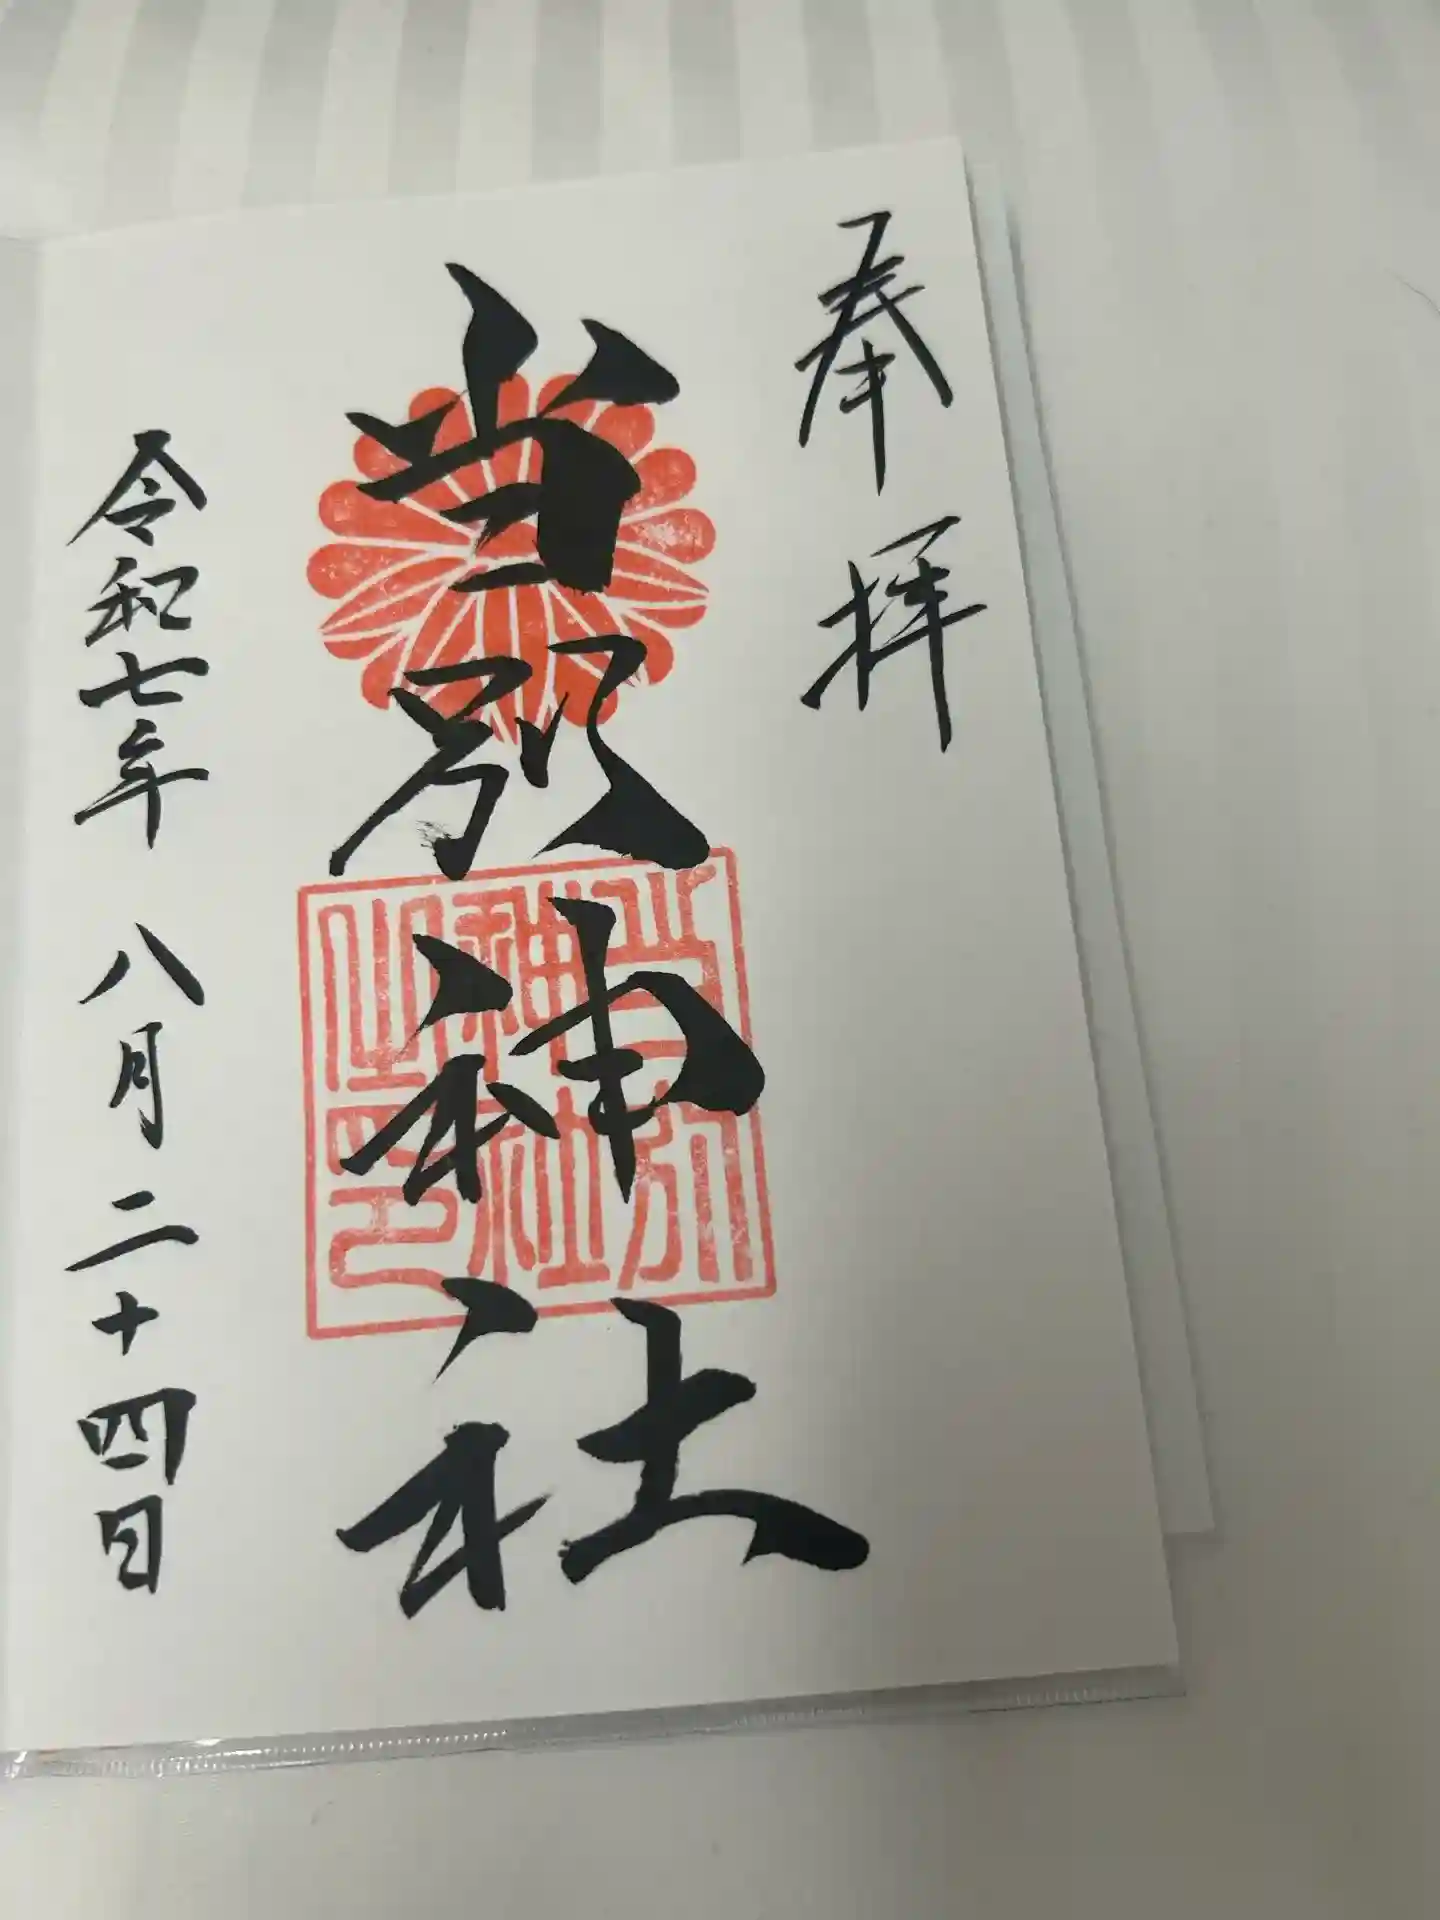 奉拝
当別神社
当別神社之印
令和七年 八月二十四日